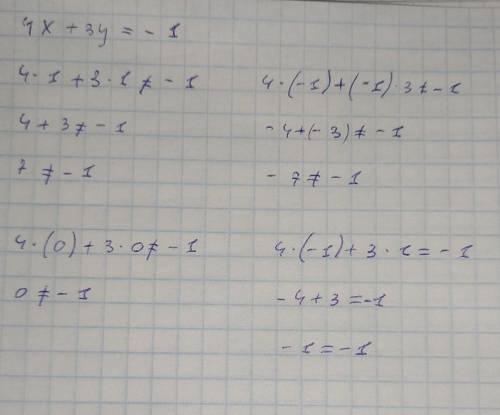 4x + 3y = - 1
4·1 + 3·1 ≠ - 1
4 + 3 ≠ - 1
7 ≠ - 1
4·(-1)+(-1)·3 ≠ -1
- 4+(-3) ≠ - 1
- 7 ≠ - 1
4·(0) + 3·0 ≠ - 1
0 ≠ - 1
4·(-1) + 3·1 = - 1
- 4 + 3 = -1
- 1 = - 1